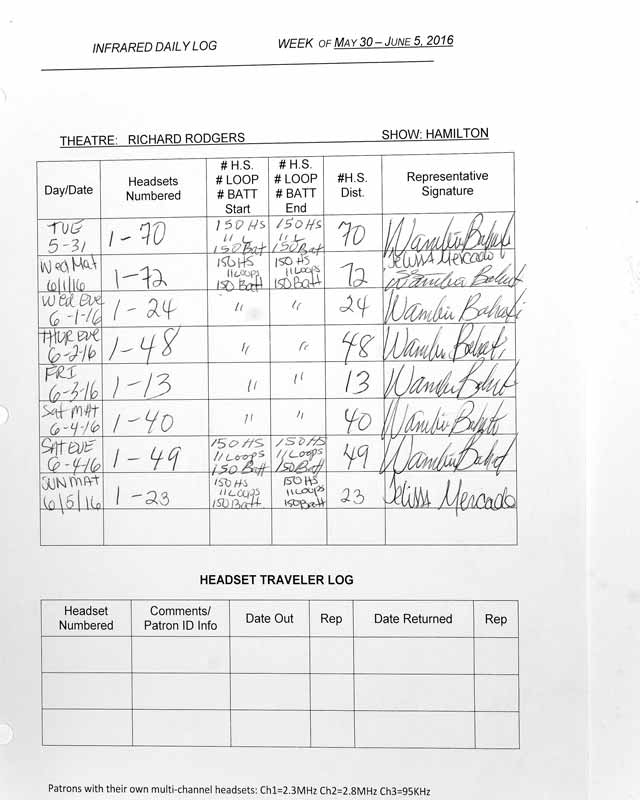 INFRARED DAILY LOG WEEK OF MAY 30 – JUNE 5, 2016
THEATRE: RICHARD RODGERS SHOW: HAMILTON
Day/Date Headsets Numbered # H.S. # LOOP # BATT Start # H.S. # LOOP # BATT End #H.S. Dist. Representative Signature
TUE 5-31 1-70 150 HS 11 L 150 Bat 150 HS 11 L 150 Bat 70
Wed Mat 6/1/16 1-72 150 HS 11 Loops 150 Batt 150 HS 11 Loops 150 Batt 72 Jelissa Mercado
Wed Eve 6-1-16 1-24 " " 24
THUR EVE 6-2-16 1-48 " " 48
FRI 6-3-16 1-13 " " 13
Sat MAT 6-4-16 1-40 " " 40
SAT EVE 6-4-16 1-49 150 HS 11 Loops 150 Batt 150 HS 11 Loops 150 Batt 49
SUN MAT 6/5/16 1-23 150 HS 11 Loops 150 Batt 150 HS 11 Loops 150 Batt 23 Jelissa Mercado
HEADSET TRAVELER LOG
Headset Numbered Comments/ Patron ID Info Date Out Rep Date Returned Rep
Patrons with their own multi-channel headsets: Ch1=2.3MHz Ch2=2.8MHz Ch3=95KHz